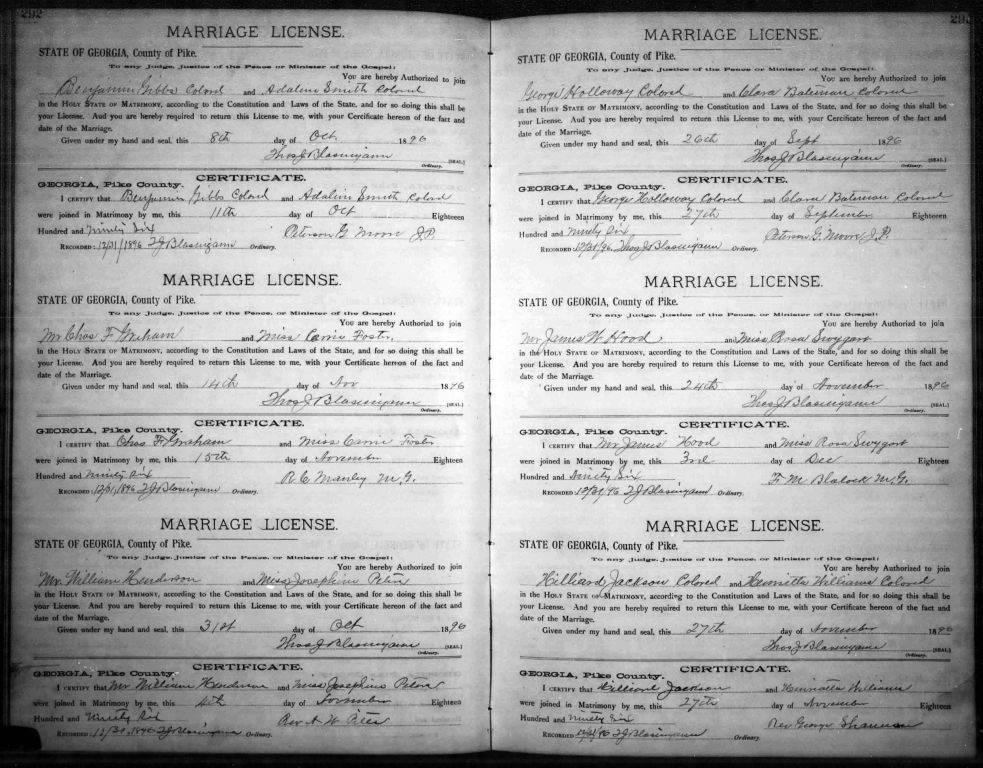 292
MARRIAGE LICENSE.
STATE OF GEORGIA, County of Pike.
To any Judge, Justice of the Peace, or Minister of the Gospel:
You are hereby Authorized to join
Benjamin Gibbs Colord and Adaline Smith Colored
in the HOLY STATE OF MATRIMONY, according to the Constitution and Laws of the State, and for so doing this shall be
your License. And you are hereby required to return this License to me, with your Certificate hereon of the fact and
date of the Marriage.
Given under my hand and seal, this 8th day of Oct 1896
Thos J Blasingame [SEAL.]
Ordinary.
CERTIFICATE.
GEORGIA, Pike County.
I CERTIFY that Benjamin Gibbs Colord and Adaline Smith Colord
were joined in Matrimony by me, this 11th day of Oct Eighteen
Hundred and Ninety Six Peterson G. Moore J.P.
RECORDED: 12/31/1896 T J Blasingame Ordinary.
MARRIAGE LICENSE.
STATE OF GEORGIA, County of Pike.
To any Judge, Justice of the Peace, or Minister of the Gospel:
You are hereby Authorized to join
Mr Chas F Graham and Miss Carrie Foster
in the HOLY STATE OF MATRIMONY, according to the Constitution and Laws of the State, and for so doing this shall be
your License. And you are hereby required to return this License to me, with your Certificate hereon of the fact and
date of the Marriage.
Given under my hand and seal, this 14th day of Nov 1896
Thos J Blasingame [SEAL.]
Ordinary.
CERTIFICATE.
GEORGIA, Pike County.
I CERTIFY that Chas F. Graham and Miss Carrie Foster
were joined in Matrimony by me, this 15th day of November Eighteen
Hundred and Ninety Six R. C. Manley M.G.
RECORDED: 12/31/1896 T J Blasingame Ordinary.
MARRIAGE LICENSE.
STATE OF GEORGIA, County of Pike.
To any Judge, Justice of the Peace, or Minister of the Gospel:
You are hereby Authorized to join
Mr. William Henderson and Miss Josephine
in the HOLY STATE OF MATRIMONY, according to the Constitution and Laws of the State, and for so doing this shall be
your License. And you are hereby required to return this License to me, with your Certificate hereon of the fact and
date of the Marriage.
Given under my hand and seal, this 31st day of Oct 1896
Thos J Blasingame [SEAL.]
Ordinary.
CERTIFICATE.
GEORGIA, Pike County.
I CERTIFY that Mr William Henderson and Miss Josephine
were joined in Matrimony by me, this day of November Eighteen
Hundred and Ninety Six Rev A. W.
RECORDED: 12/31, 1896 T J Blasingame Ordinary.
293
MARRIAGE LICENSE.
STATE OF GEORGIA, County of Pike.
To any Judge, Justice of the Peace, or Minister of the Gospel:
You are hereby Authorized to join
George Holloway Colored and Clara Bateman Colored
in the HOLY STATE OF MATRIMONY, according to the Constitution and Laws of the State, and for so doing this shall be
your License. And you are hereby required to return this License to me, with your Certificate hereon of the fact and
date of the Marriage.
Given under my hand and seal, this 26th day of Sept 1896
Thos J Blasingame [SEAL.]
Ordinary.
CERTIFICATE.
GEORGIA, Pike County.
I CERTIFY that George Holloway Colored and Clara Bateman Colored
were joined in Matrimony by me, this 27th day of September Eighteen
Hundred and Ninety Six Peterson G. Moore J.P.
RECORDED: 12/31/96. Thos J Blasingame Ordinary.
MARRIAGE LICENSE.
STATE OF GEORGIA, County of Pike.
To any Judge, Justice of the Peace, or Minister of the Gospel:
You are hereby Authorized to join
Mr James W. Hood and Miss Rosa Swygort
in the HOLY STATE OF MATRIMONY, according to the Constitution and Laws of the State, and for so doing this shall be
your License. And you are hereby required to return this License to me, with your Certificate hereon of the fact and
date of the Marriage.
Given under my hand and seal, this 24th day of November 1896
Thos J Blasingame [SEAL.]
Ordinary.
CERTIFICATE.
GEORGIA, Pike County.
I CERTIFY that Mr James Hood and Miss Rosa Swygort
were joined in Matrimony by me, this 3rd day of Dec Eighteen
Hundred and Ninety Six F. M. Blalock M.G.
RECORDED 12/31/96 T J Blasingame Ordinary.
MARRIAGE LICENSE.
STATE OF GEORGIA, County of Pike.
To any Judge, Justice of the Peace, or Minister of the Gospel:
You are hereby Authorized to join
Hilliard Jackson Colored and Henrietta Williams Colored
in the HOLY STATE OF MATRIMONY, according to the Constitution and Laws of the State, and for so doing this shall be
your License. And you are hereby required to return this License to me, with your Certificate hereon of the fact and
date of the Marriage.
Given under my hand and seal, this 27th day of November 1896
Thos J Blasingame [SEAL.]
Ordinary.
CERTIFICATE.
GEORGIA, Pike County.
I CERTIFY that Hilliard Jackson and Henrietta Williams
were joined in Matrimony by me, this 27th day of November Eighteen
Hundred and Ninety Six Rev George Shannon
RECORDED 12/31/96 T J Blasingame Ordinary.